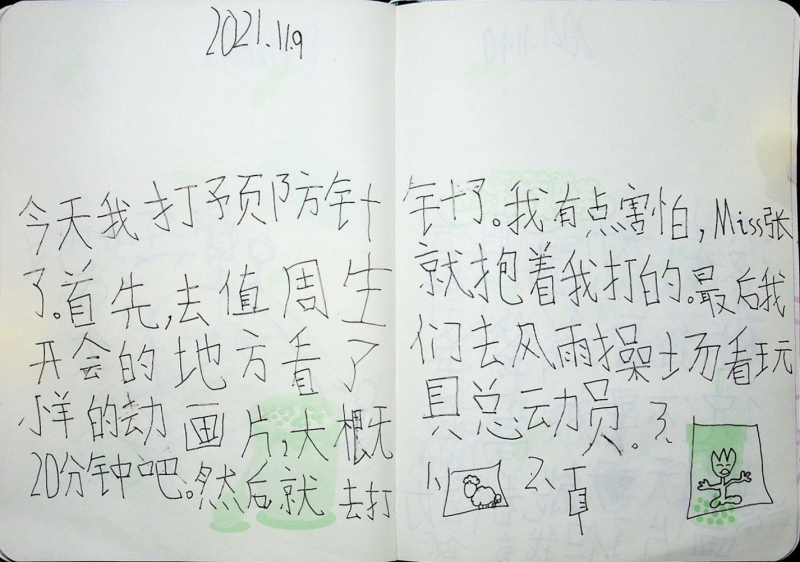 2021.11.9
今天我打予页防针
了。首先,去值周生
开会的地方看了
小羊的动画片,大概
20分钟吧。然后就去打
针了。我有点害怕,Miss张
就抱着我打的。最后我
们去风雨操场看玩
具总动员。3、
1、 2、